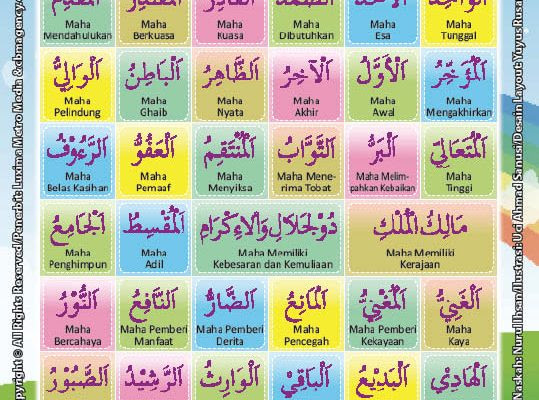 Maha
Mendahulukan
Maha
Berkuasa
Maha
Kuasa
Maha
Dibutuhkan
Maha
Esa
Maha
Tunggal
اَلْوَالِيُّ
Maha
Pelindung
اَلْبَاطِنُ
Maha
Ghaib
اَلظَّاهِرُ
Maha
Nyata
اَلْآخِرُ
Maha
Akhir
اَلْأَوَّلُ
Maha
Awal
اَلْمُؤَخِّرُ
Maha
Mengakhirkan
اَلرَّءُوْفُ
Maha
Belas Kasihan
اَلْعَفُوُّ
Maha
Pemaaf
اَلْمُنْتَقِمُ
Maha
Menyiksa
اَلتَّوَّابُ
Maha Mene-
rima Tobat
اَلْبَرُّ
Maha Melim-
pahkan Kebaikan
اَلْمُتَعَالِيْ
Maha
Tinggi
اَلْجَامِعُ
Maha
Penghimpun
اَلْمُقْسِطُ
Maha
Adil
ذُوْلْجَلَالِ وَالْاِكْرَامِ
Maha Memiliki
Kebesaran dan Kemuliaan
مَالِكُ الْمُلْكِ
Maha Memiliki
Kerajaan
اَلنُّوْرُ
Maha
Bercahaya
اَلنَّافِعُ
Maha Pemberi
Manfaat
اَلضَّارُّ
Maha Pemberi
Derita
اَلْمَانِعُ
Maha
Pencegah
اَلْمُغْنِيُّ
Maha Pemberi
Kekayaan
اَلْغَنِيُّ
Maha
Kaya
اَلصَّبُوْرُ
اَلرَّشِيْدُ
اَلْوَارِثُ
اَلْبَاقِيْ
اَلْبَدِيْعُ
اَلْهَادِيْ
Copyright © All Rights Reserved/Penerbit: Luxima Metro Media &
Naskah: Nurul Ihsan/Ilustrasi: Uci Ahmad Sanusi/Desain Layout: Yuyus Rusa